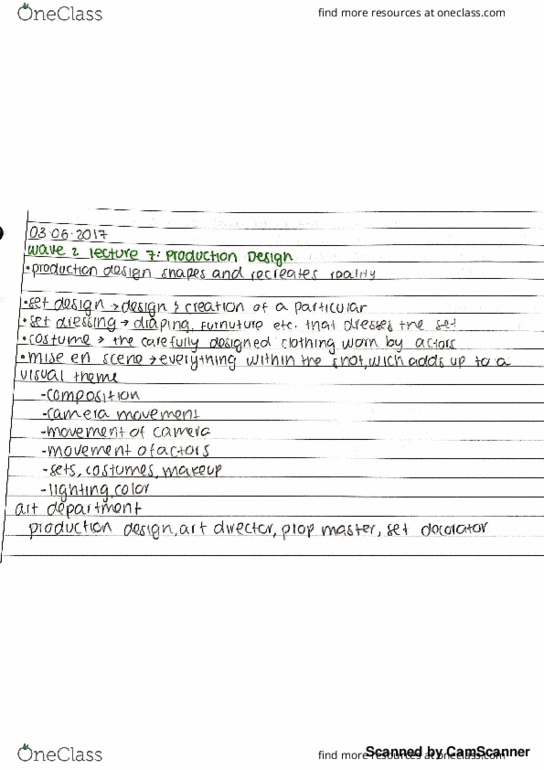 OneClass
find more resources at oneclass.com
03.06.2017
wave 2 lecture 7: Production Design
•production design shapes and recreates reality
•set design → design & creation of a particular
•set dressing → draping, furnuture etc. that dresses the set
•costume → the carefully designed clothing worn by actors
•mise en scene → everything within the shot, wich adds up to a
visual theme
-composition
-camera movement
-movement of camera
-movement of actors
-sets, costumes, makeup
-lighting, color
art department
production design, art director, prop master, set decorator
OneClass
find more resources at oneclass.com
Scanned by CamScanner